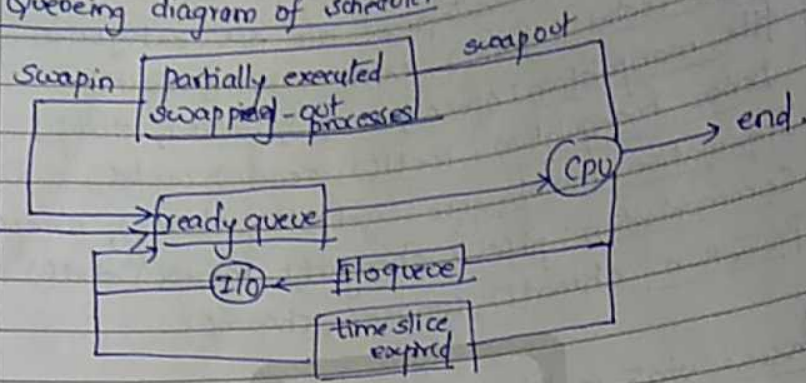 Queueing diagram of
swapout
Swapin
partially executed
swapping-out
processes
end.
CPU
ready queue
I/O
I/o queue
time slice
expired